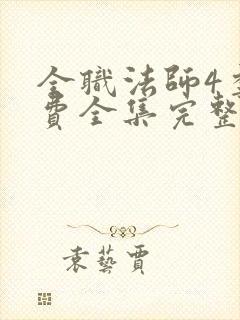 全職法師4
費全集完整
袁藝賈